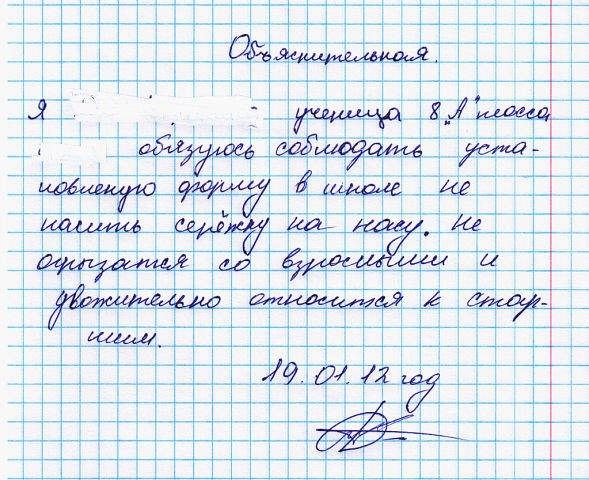 Объяснительная.
Я ученица 8 „А" класса
обязуюсь соблюдать уста-
новленую форму в школе не
насить серёжку на насу. Не
огрызатся со взрослыми и
уважительно относится к стар-
шим.
19.01.12 год